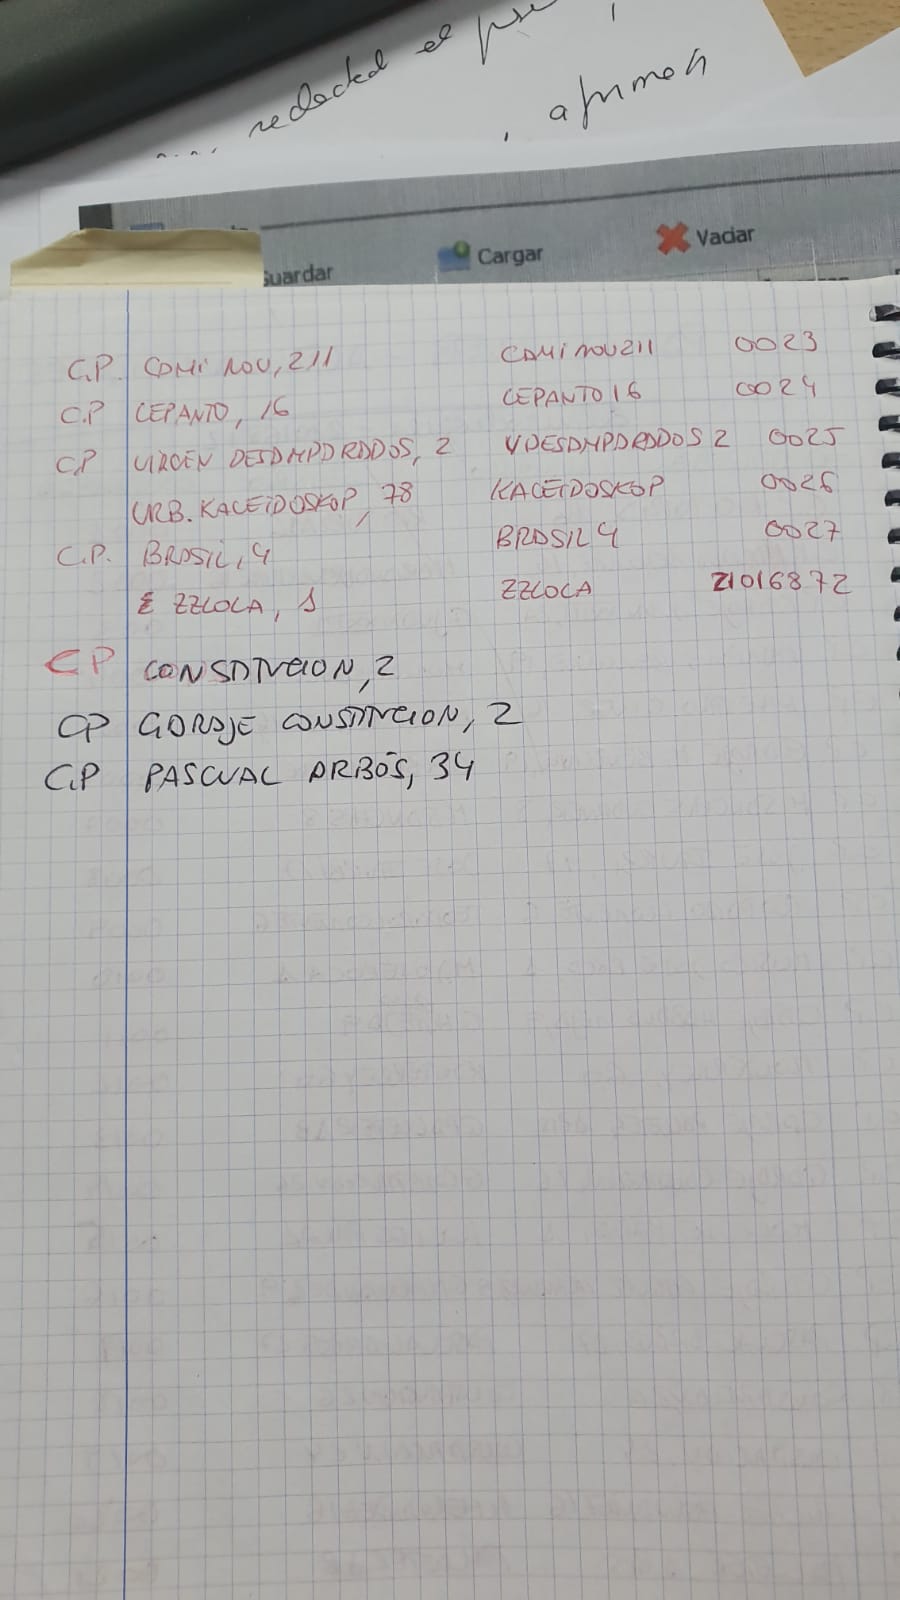 redacted el
afirmen
Guardar Cargar Vaciar
C.P. CAMI NOU, 211 CAMI NOU 211 0023
C.P LEPANTO, 16 LEPANTO 16 0024
CP VIRGEN DESAMPARADOS, 2 VDESAMPARADOS 2 0025
URB. KALEIDOSKOP, 78 KALEIDOSKOP 0026
C.P. BRASIL, 4 BRASIL 4 0027
ZZLOCA, 1 ZZLOCA 21016872
CP CONSTITUCION, 2
CP GARAJE CONSTITUCION, 2
C.P PASCUAL ARBÓS, 34